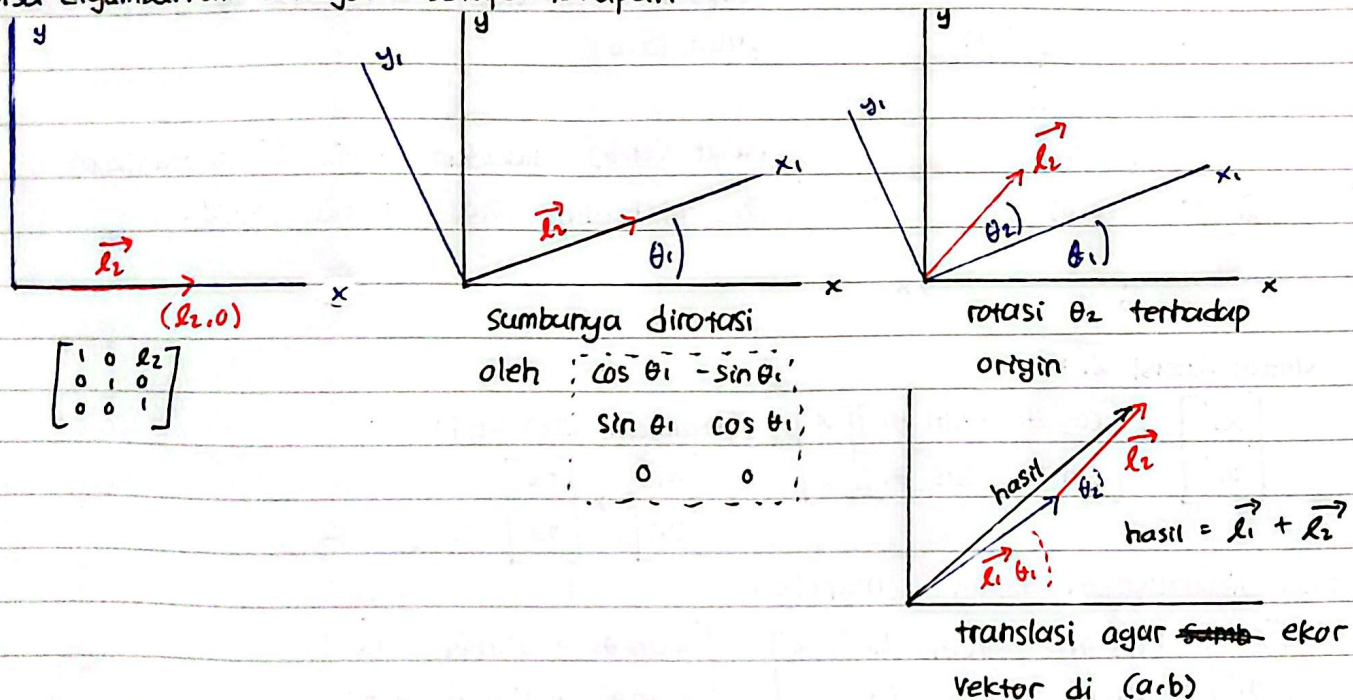 y
l₂
(l₂,0)
x
[1 0 l₂
0 1 0
0 0 1]
y₁
y
l₂
x₁
θ₁
x
sumbunya dirotasi
oleh cos θ₁ -sin θ₁
sin θ₁ cos θ₁
0 0
y₁
y
l₂
θ₂
x₁
θ₁
x
rotasi θ₂ terhadap
origin
hasil
l₂
θ₂
l₁ θ₁
hasil = l₁ + l₂
translasi agar sumb ekor
vektor di (a,b)